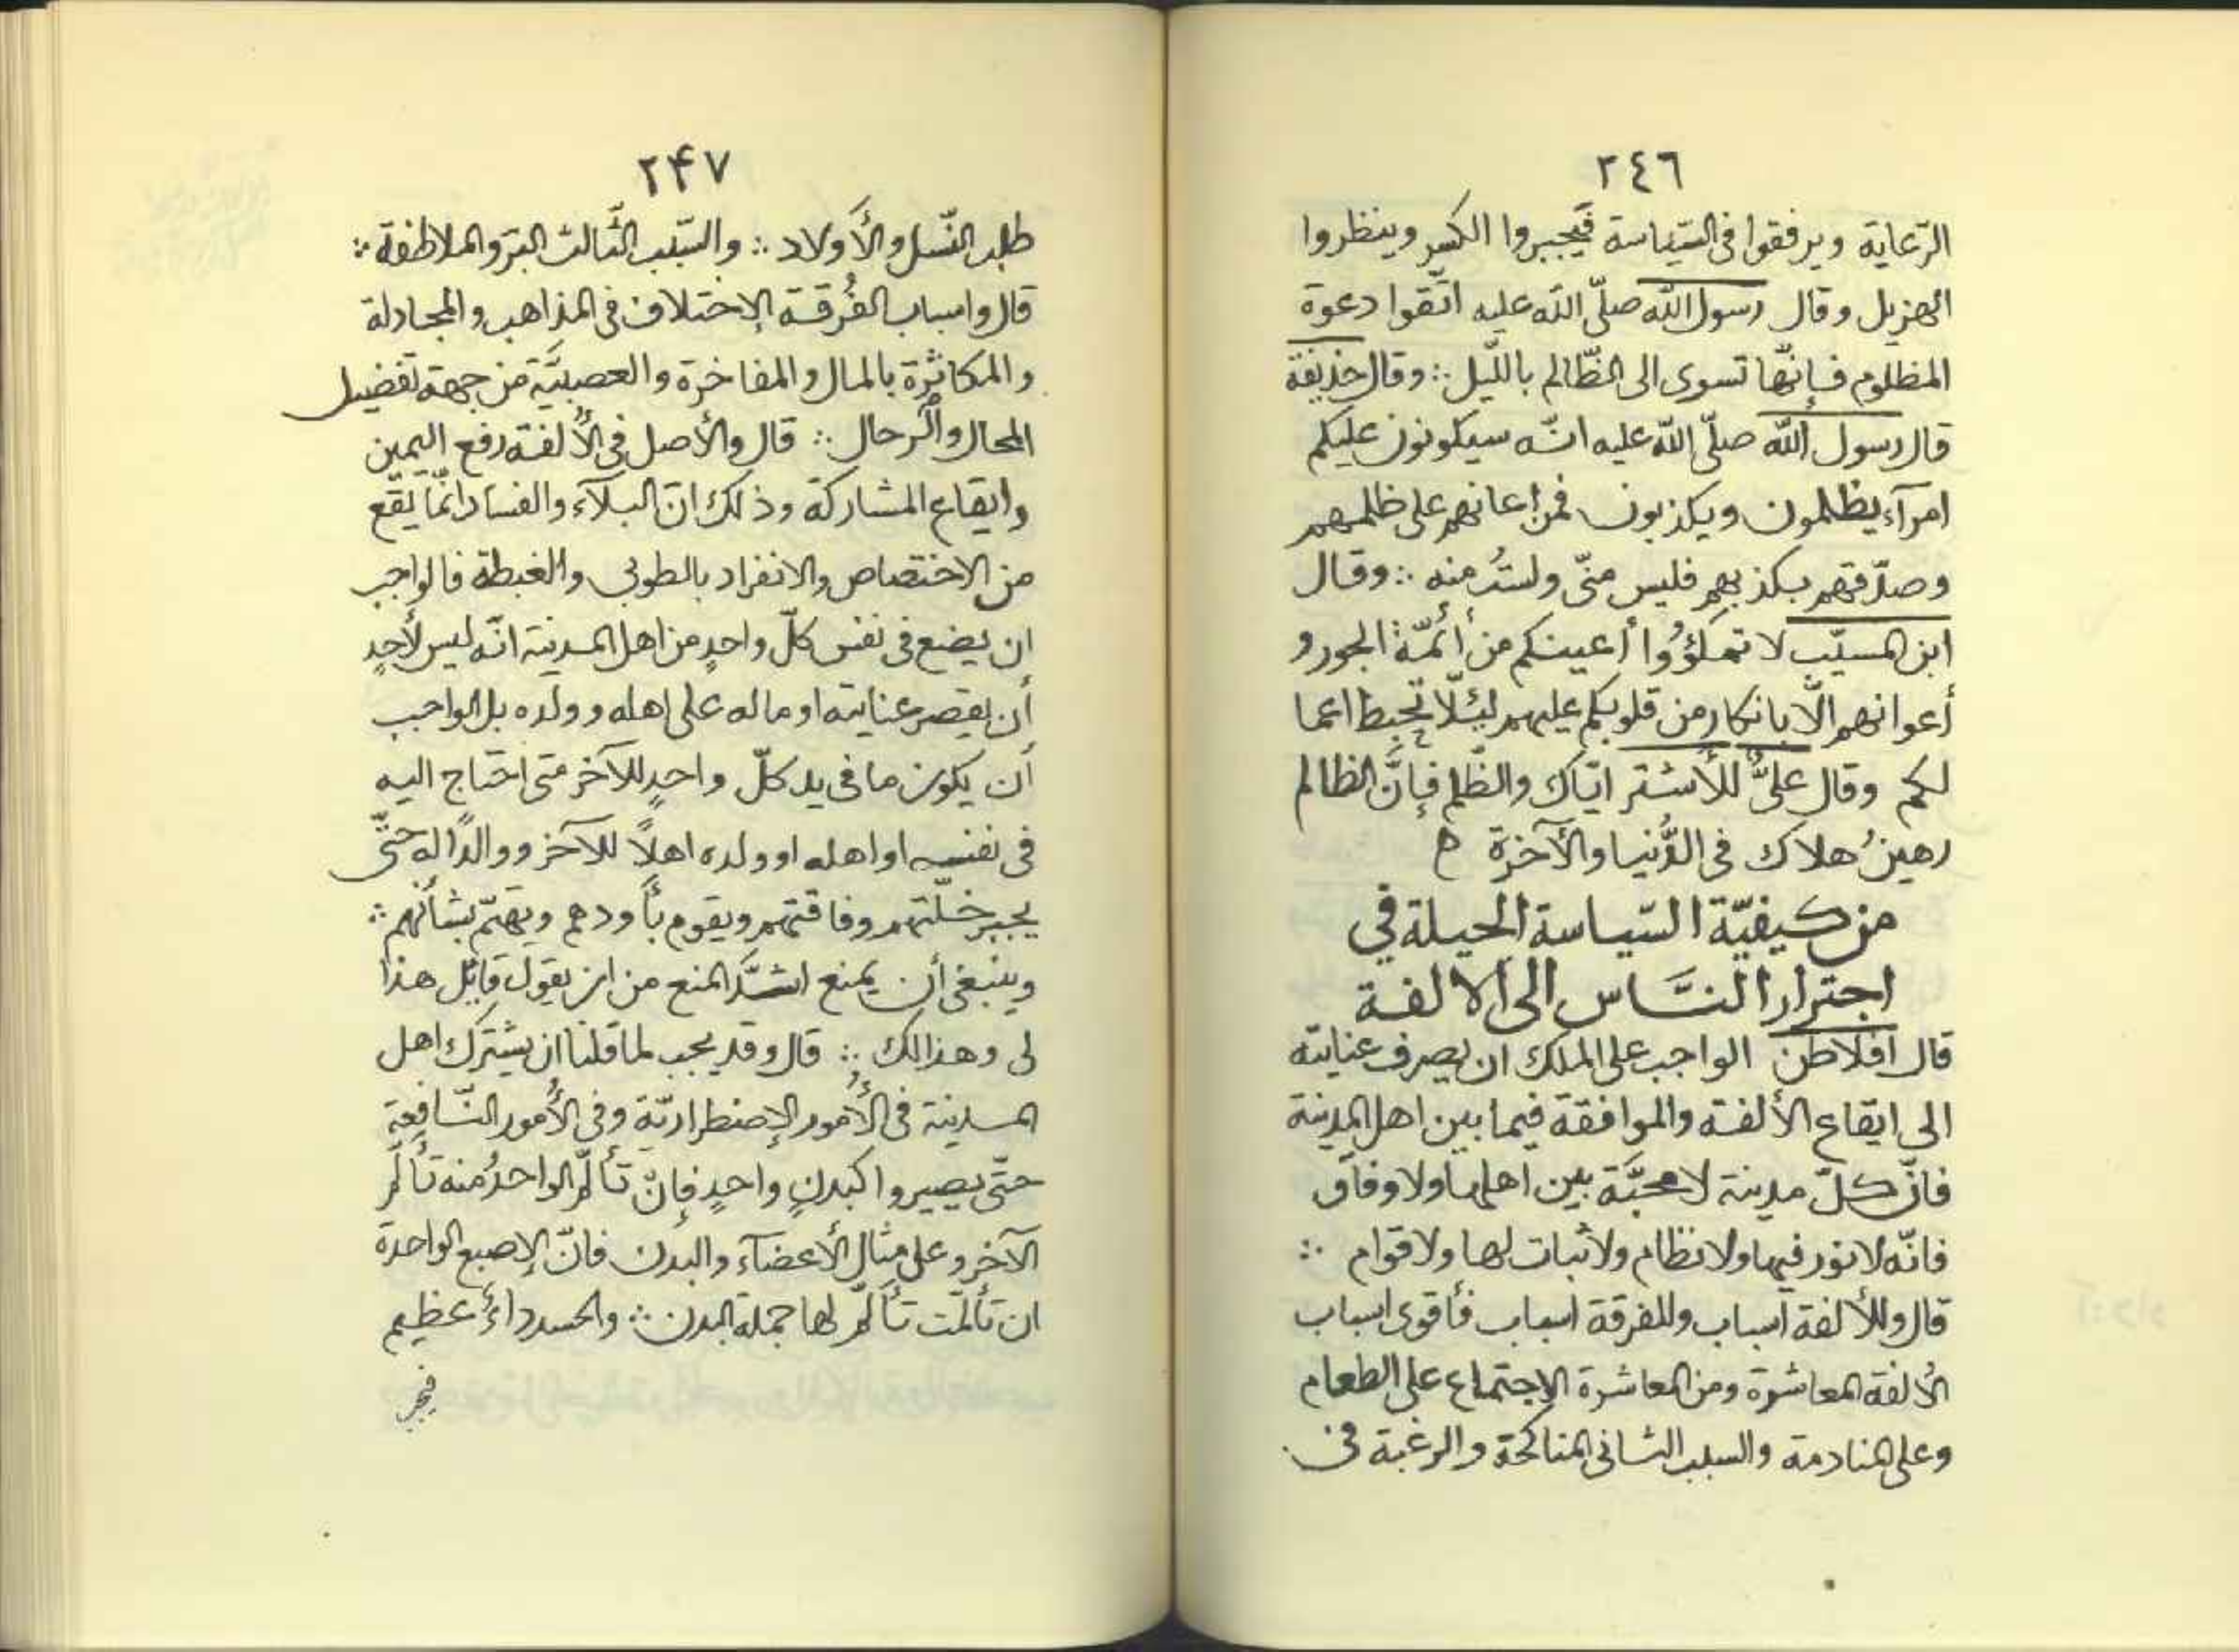 ٢٤٦
الرّعاية ويرفقوا فى السّياسة فيجبروا الكسر وينظروا
الهزيل وقال رسول الله صلّى الله عليه اتّقوا دعوة
المظلوم فإنّها تسرى الى الظّالم باللّيل ∴ وقال حذيفة
قال رسول الله صلّى الله عليه انّه سيكونون عليكم
امرآء يظلمون ويكذبون فمن اعانهم على ظلمهم
وصدّقهم بكذبهم فليس منّى ولستُ منه ∴ وقال
ابن المسيّب لا تملؤُوا أعينكم من أئمّة الجور و
أعوانهم الّا بانكار من قلوبكم عليهم لئلّا تحبط اعما
لكم وقال علىٌّ للأشتر ايّاك والظّلم فإنَّ الظالم
رهينُ هلاك فى الدُّنيا والآخرة ه
من كيفيّة السّياسة الحيلة في
اجترار النَّاس الى الالفة
قال افلاطن الواجب على الملك ان يصرف عنايته
الى ايقاع الألفة والموافقة فيما بين اهل المدينة
فانّ كلّ مدينة لا محبَّة بين اهلها ولا وفاق
فانّه لا نور فيها ولا نظام ولا ثبات لها ولا قوام ∴
قال وللألفة اسباب وللفرقة اسباب فأقوى اسباب
الأُلفة المعاشرة ومن المعاشرة الإجتماع على الطعام
وعلى المنادمة والسبب الثانى المناكحة والرغبة فى
٢۴٧
طلب النّسل والأولاد ∴ والسّبب الثّالث البرّ والملاطفة ∴
قال واسباب الفُرقة الإختلاف فى المذاهب والمجادلة
والمكاثرة بالمال والمفاخرة والعصبيَّة من جهة تفضيل
المحال والرحال ∴ قال والأصل فى الأُلفة رفع اليمين
وايقاع المشاركة وذلك انّ البلآء والفساد انّما يقع
من الاختصاص والانفراد بالطوبى والغبطة فالواجب
ان يضع فى نفس كلّ واحدٍ من اهل المدينة انّه ليس لأحدٍ
أن يقصر عنايته او ماله على اهله وولده بل الواجب
أن يكون ما فى يد كلّ واحدٍ للآخر متى احتاج اليه
فى نفسه او اهله او ولده اهلاً للآخر ووالدًا له حتّى
يجبر خلّتهم وفاقتهم ويقوم بأودهم ويهتمّ بشأنهم ∴
وينبغى أن يمنع اشدَّ المنع من ان يقول قائل هذا
لى وهذا لك ∴ قال وقد يجب لما قلنا ان يشترك اهل
المدينة فى الأُمور الإضطراريّة وفى الأُمور النّافعة
حتّى يصيروا كبدنٍ واحدٍ فإنْ تألّم الواحدُ منه تألّم
الآخر وعلى مثال الأعضآء والبدن فانّ الإصبع الواحدة
ان تألمّت تألّم لها جملة البدن ∴ والحسد داءٌ عظيم